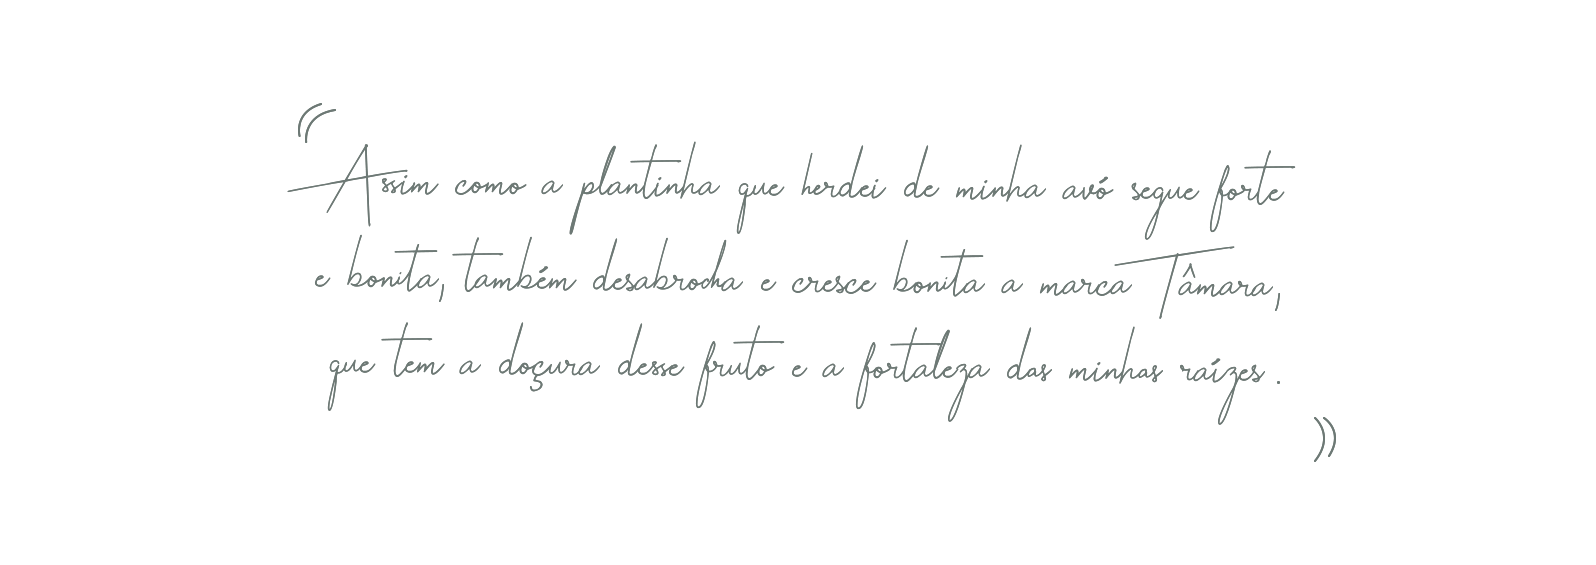 “Assim como a plantinha que herdei de minha avó segue forte
e bonita, também desabrocha e cresce bonita a marca Tâmara,
que tem a doçura desse fruto e a fortaleza das minhas raízes.”